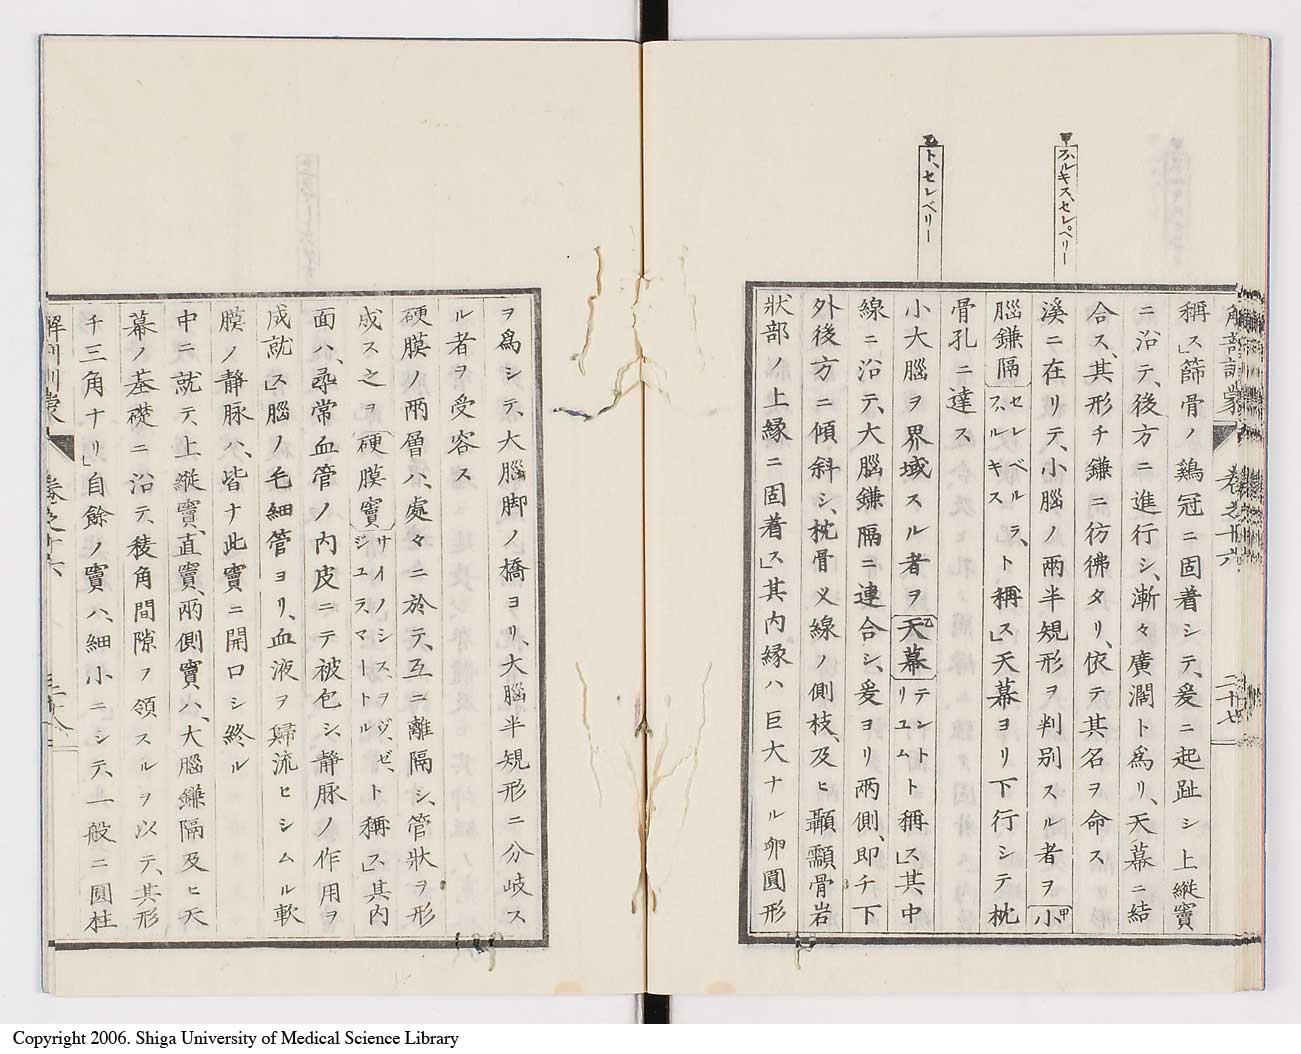 甲
ズルキス、セレベリー
乙
ト、セレベリー
稱ス」篩骨ノ鷄冠ニ固着シテ、爰ニ起趾シ上縦竇
ニ沿テ、後方ニ進行シ、漸々廣濶ト爲リ、天幕ニ結
合ス、其形チ鎌ニ彷彿タリ、依テ其名ヲ命ス
溪ニ在リテ、小腦ノ兩半規形ヲ判別スル者ヲ小甲
腦鎌隔セレベルラ、ズルキスト稱ス」天幕ヨリ下行シテ枕
骨孔ニ達ス
小大腦ヲ界域スル者ヲ天乙幕テントリユムト稱」ス其中
線ニ沿テ、大腦鎌隔ニ連合シ、爰ヨリ兩側、即チ下
外後方ニ傾斜シ、枕骨义線ノ側枝、及ヒ顳顬骨岩
狀部ノ上縁ニ固着ス」其内縁ハ巨大ナル卵圓形
解剖訓蒙
卷之十六
二十七
ヲ爲シテ、大腦脚ノ橋ヨリ、大腦半規形ニ分岐ス
ル者ヲ受容ス
硬膜ノ兩層ハ、處々ニ於テ、互ニ離隔シ、管狀ヲ形
成ス之ヲ硬膜竇サイノシスヲヅ、ゼ、ジユラ、マートトルト稱」ス其内
面ハ、尋常血管ノ内皮ニテ被包シ、靜脉ノ作用ヲ
成就」ス腦ノ毛細管ヨリ、血液ヲ歸流セシムル軟
膜ノ靜脉ハ、皆ナ此竇ニ開口シ終ル
中ニ就テ、上縦竇、直竇、兩側竇ハ、大腦鎌隔及ヒ天
幕ノ基礎ニ沿テ、稜角間隙ヲ領スルヲ以テ、其形
チ三角ナリ」自餘ノ竇ハ、細小ニシテ、一般ニ圓柱
解剖訓蒙
卷之十六
Copyright 2006. Shiga University of Medical Science Library